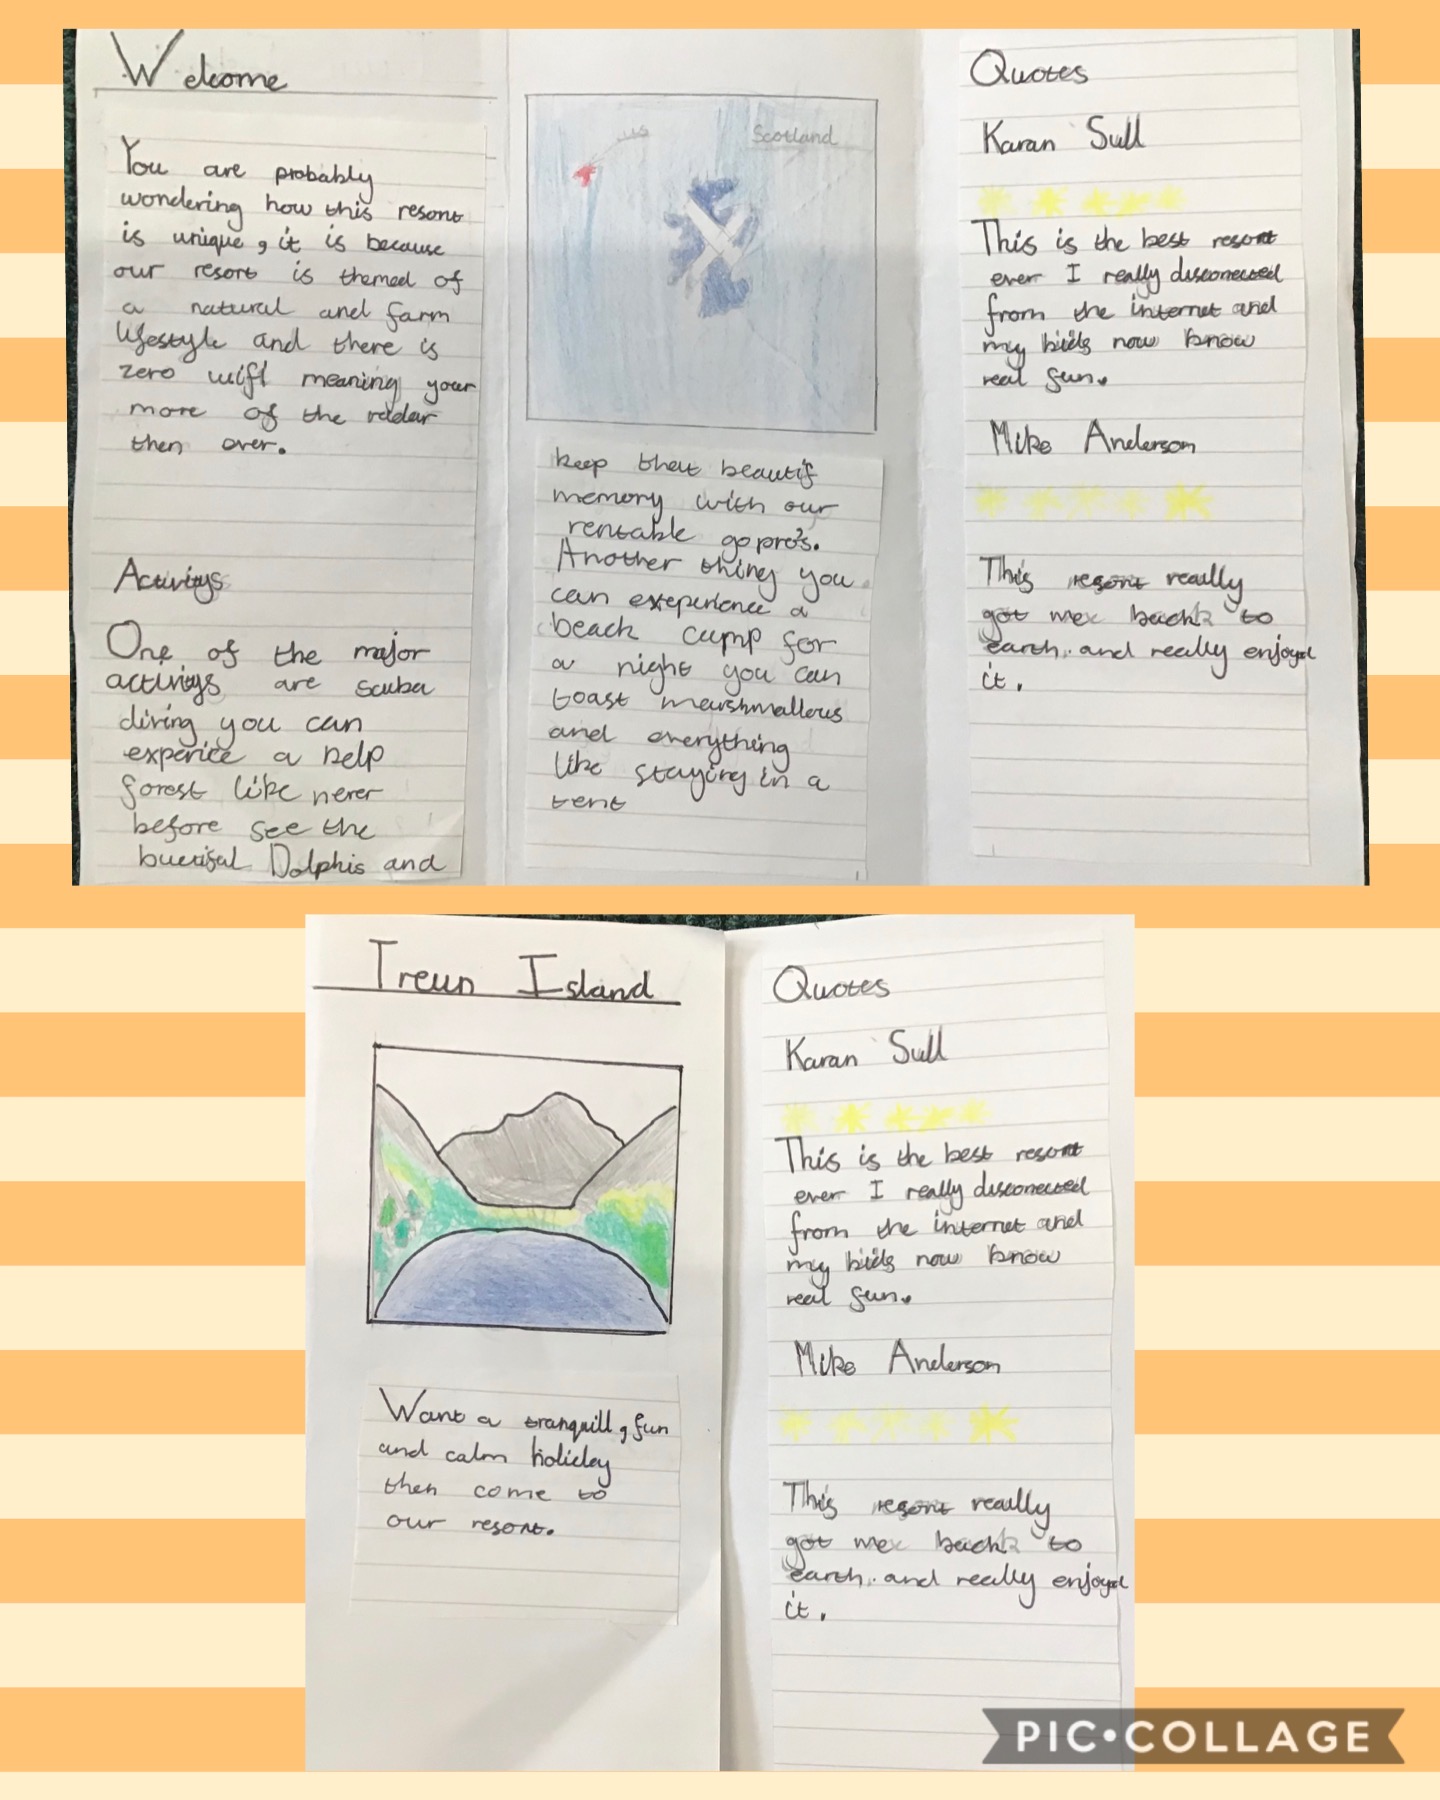 Welcome
You are probably
wondering how this resort
is unique, it is because
our resort is themed of
a natural and farm
lifestyle and there is
zero wifi meaning your
more of the radar
then over.
Activitys
One of the major
activitys are scuba
diving you can
experice a kelp
forest like never
before see the
buetifal Dolphis and
us
Scotland
keep that beautif
memory with our
rentable gopro's.
Another thing you
can exeperience a
beach camp for
a night you can
toast marshmallous
and everything
like staying in a
tent
Quotes
Karan Sull
This is the best resort
ever I really disconected
from the internet and
my kids now know
real fun.
Mike Anderson
This resort really
got me back to
earth. and really enjoyed
it.
Treun Island
Want a tranquill, fun
and calm holiday
then come to
our resort.
Quotes
Karan Sull
This is the best resort
ever I really disconected
from the internet and
my kids now know
real fun.
Mike Anderson
This resort really
got me back to
earth. and really enjoyed
it.
PIC•COLLAGE